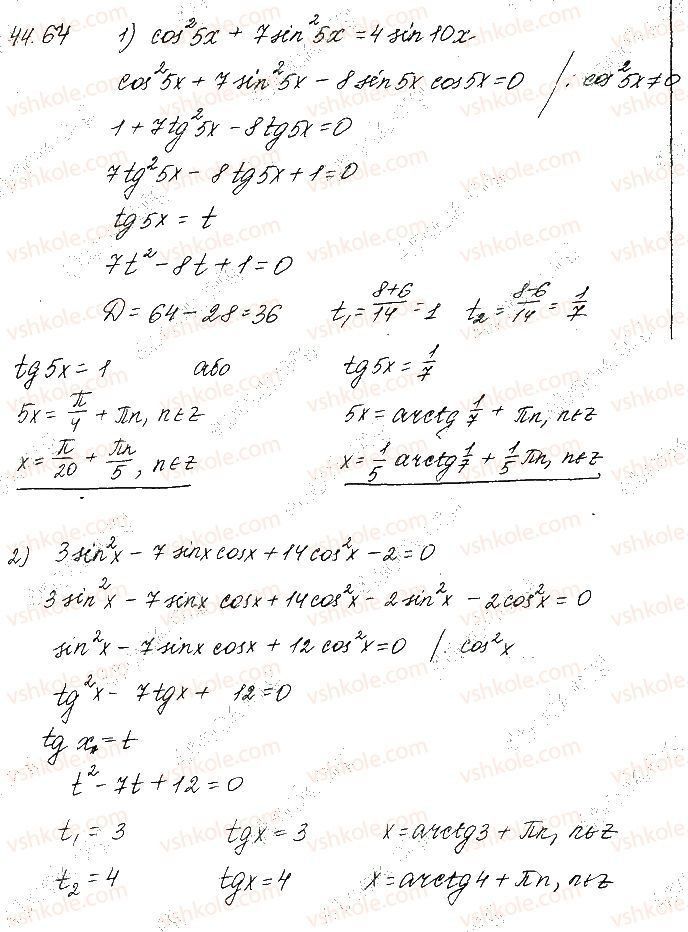 44.64 1) cos²5x + 7sin²5x = 4 sin10x
cos²5x + 7sin²5x − 8sin5x cos5x = 0 / : cos²5x≠0
1 + 7tg²5x − 8tg5x = 0
7tg²5x − 8tg5x + 1 = 0
tg5x = t
7t² − 8t + 1 = 0
D = 64 − 28 = 36 t₁ = (8+6)/14 = 1 t₂ = (8−6)/14 = 1/7
tg5x = 1 або tg5x = 1/7
5x = π/4 + πn, n∈z 5x = arctg 1/7 + πn, n∈z
x = π/20 + πn/5, n∈z x = 1/5 arctg 1/7 + 1/5 πn, n∈z
2) 3sin²x − 7sinx cosx + 14cos²x − 2 = 0
3sin²x − 7sinx cosx + 14cos²x − 2sin²x − 2cos²x = 0
sin²x − 7sinx cosx + 12cos²x = 0 / : cos²x
tg²x − 7tgx + 12 = 0
tg x = t
t² − 7t + 12 = 0
t₁ = 3 tgx = 3 x = arctg3 + πn, n∈z
t₂ = 4 tgx = 4 x = arctg4 + πn, n∈z